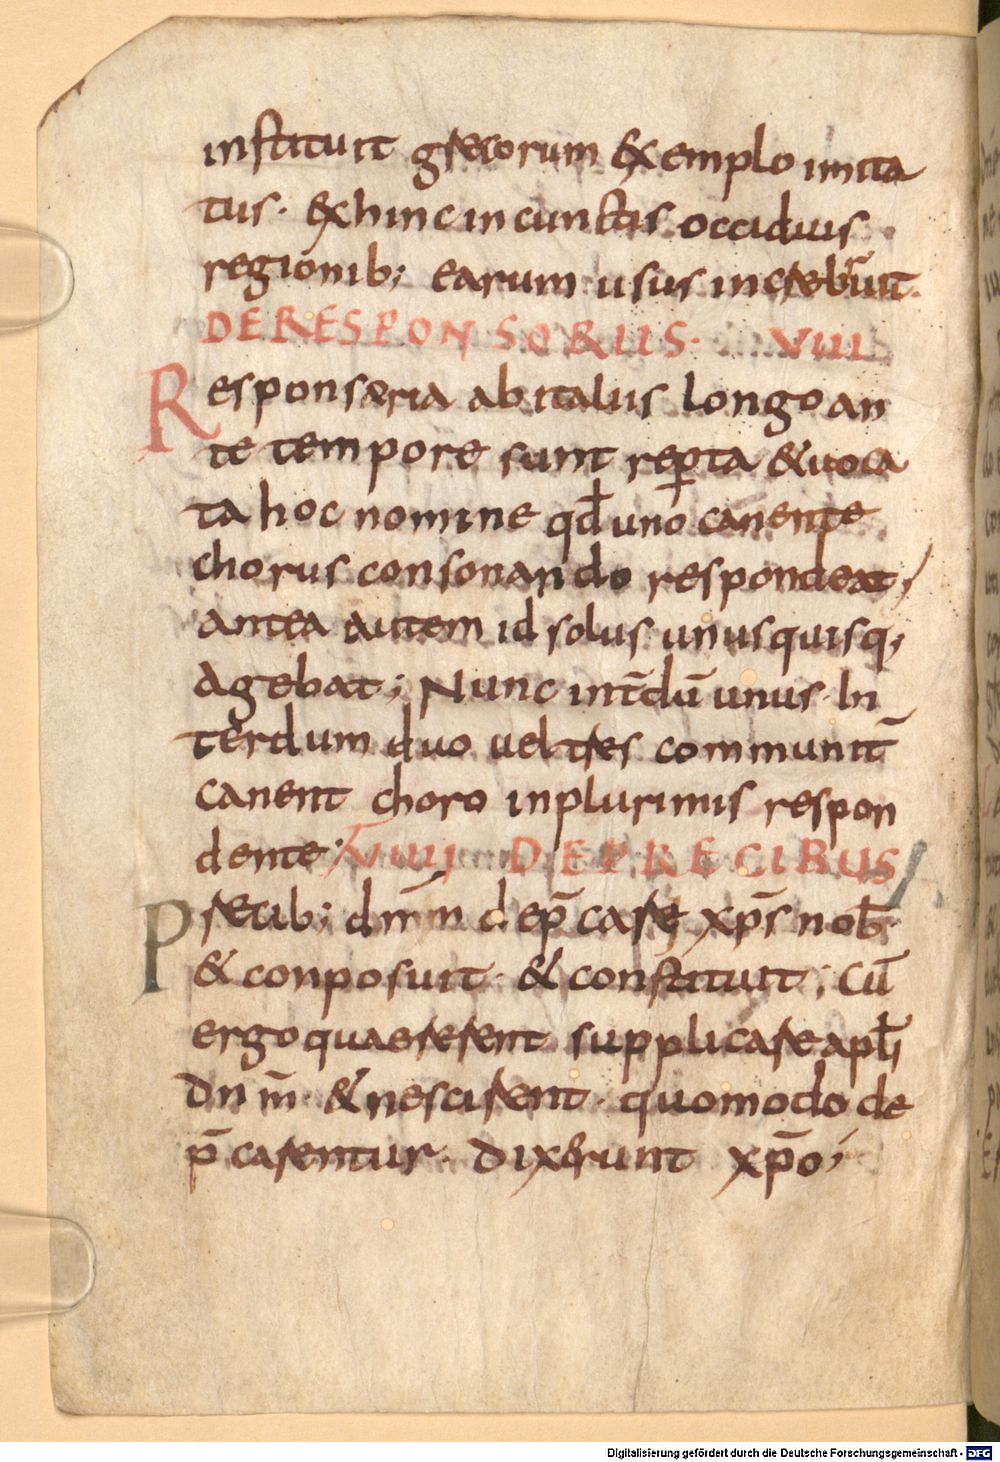 instituit grecorum exemplo imita
tus. exhinc in cunctis occiduis
regionib; earum usus increbruit.
DE RESPONSORIIS. VIII
Responsaria ab italis longo an
te tempore sunt rep̲ta & uoca
ta hoc nomine qđ uno canente
chorus consonando respondeat;
antea autem id solus unusquisq;
agebat; Nunc int̄dū unus. In
terdum duo uel tres communit̄
canent choro in plurimis respon
dente; VIIII DE PRECIBUS
Precib; dn̄m dep̄care xp̄s nob̄.
& conposuit. & constituit; Cū
ergo quaererent supplicare apłi
dn̄m. & nescirent. quomodo de
p̄carentur. dixerunt xp̄o;
Digitalisierung gefördert durch die Deutsche Forschungsgemeinschaft - DFG